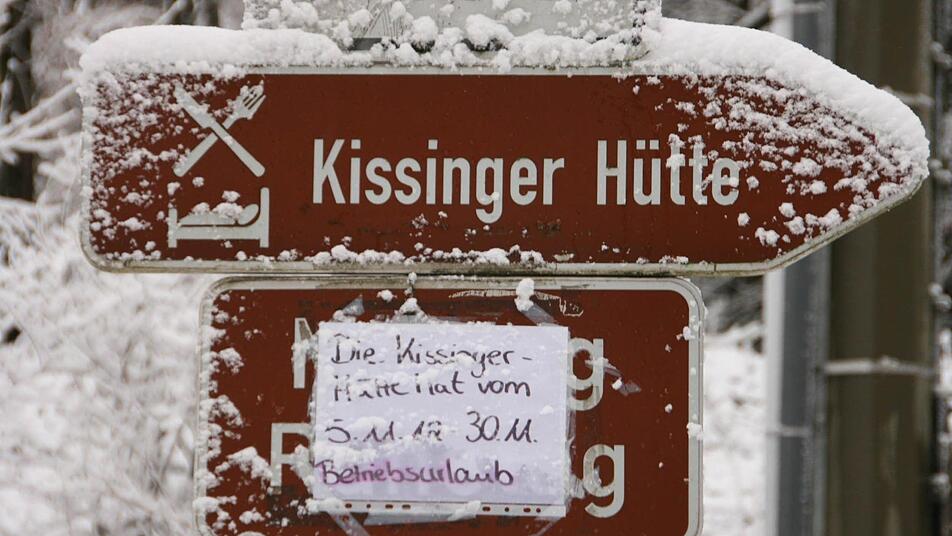 Kissinger Hütte
Die Kissinger-
Hütte hat vom
5.11.12 30.11.
Betriebsurlaub